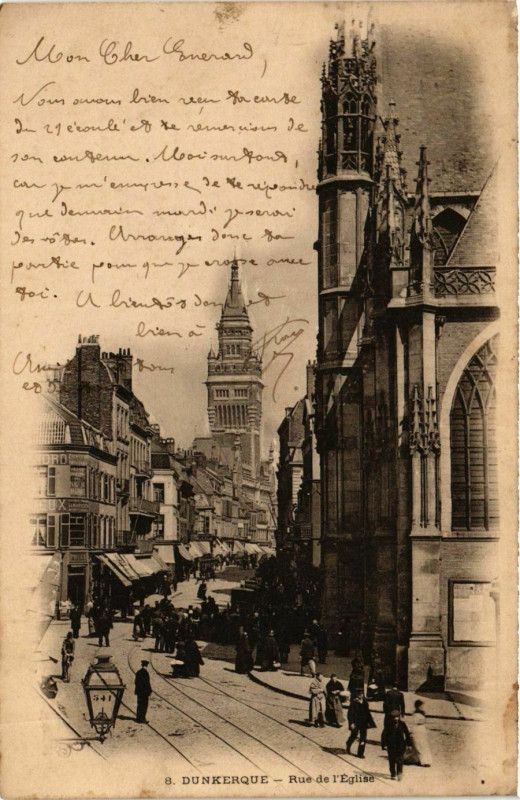 Mon Cher Guerard,
Nous avons bien reçu ta carte
du 29 écoulé et te remercions de
son contenu. Moi surtout,
car je m'empresse de te répondre
que demain mardi je serai
des vôtres. Arranges donc ta
partie pour que je croise avec
toi. A bientôt donc et
bien à
tous
et
541
8. DUNKERQUE — Rue de l'Église